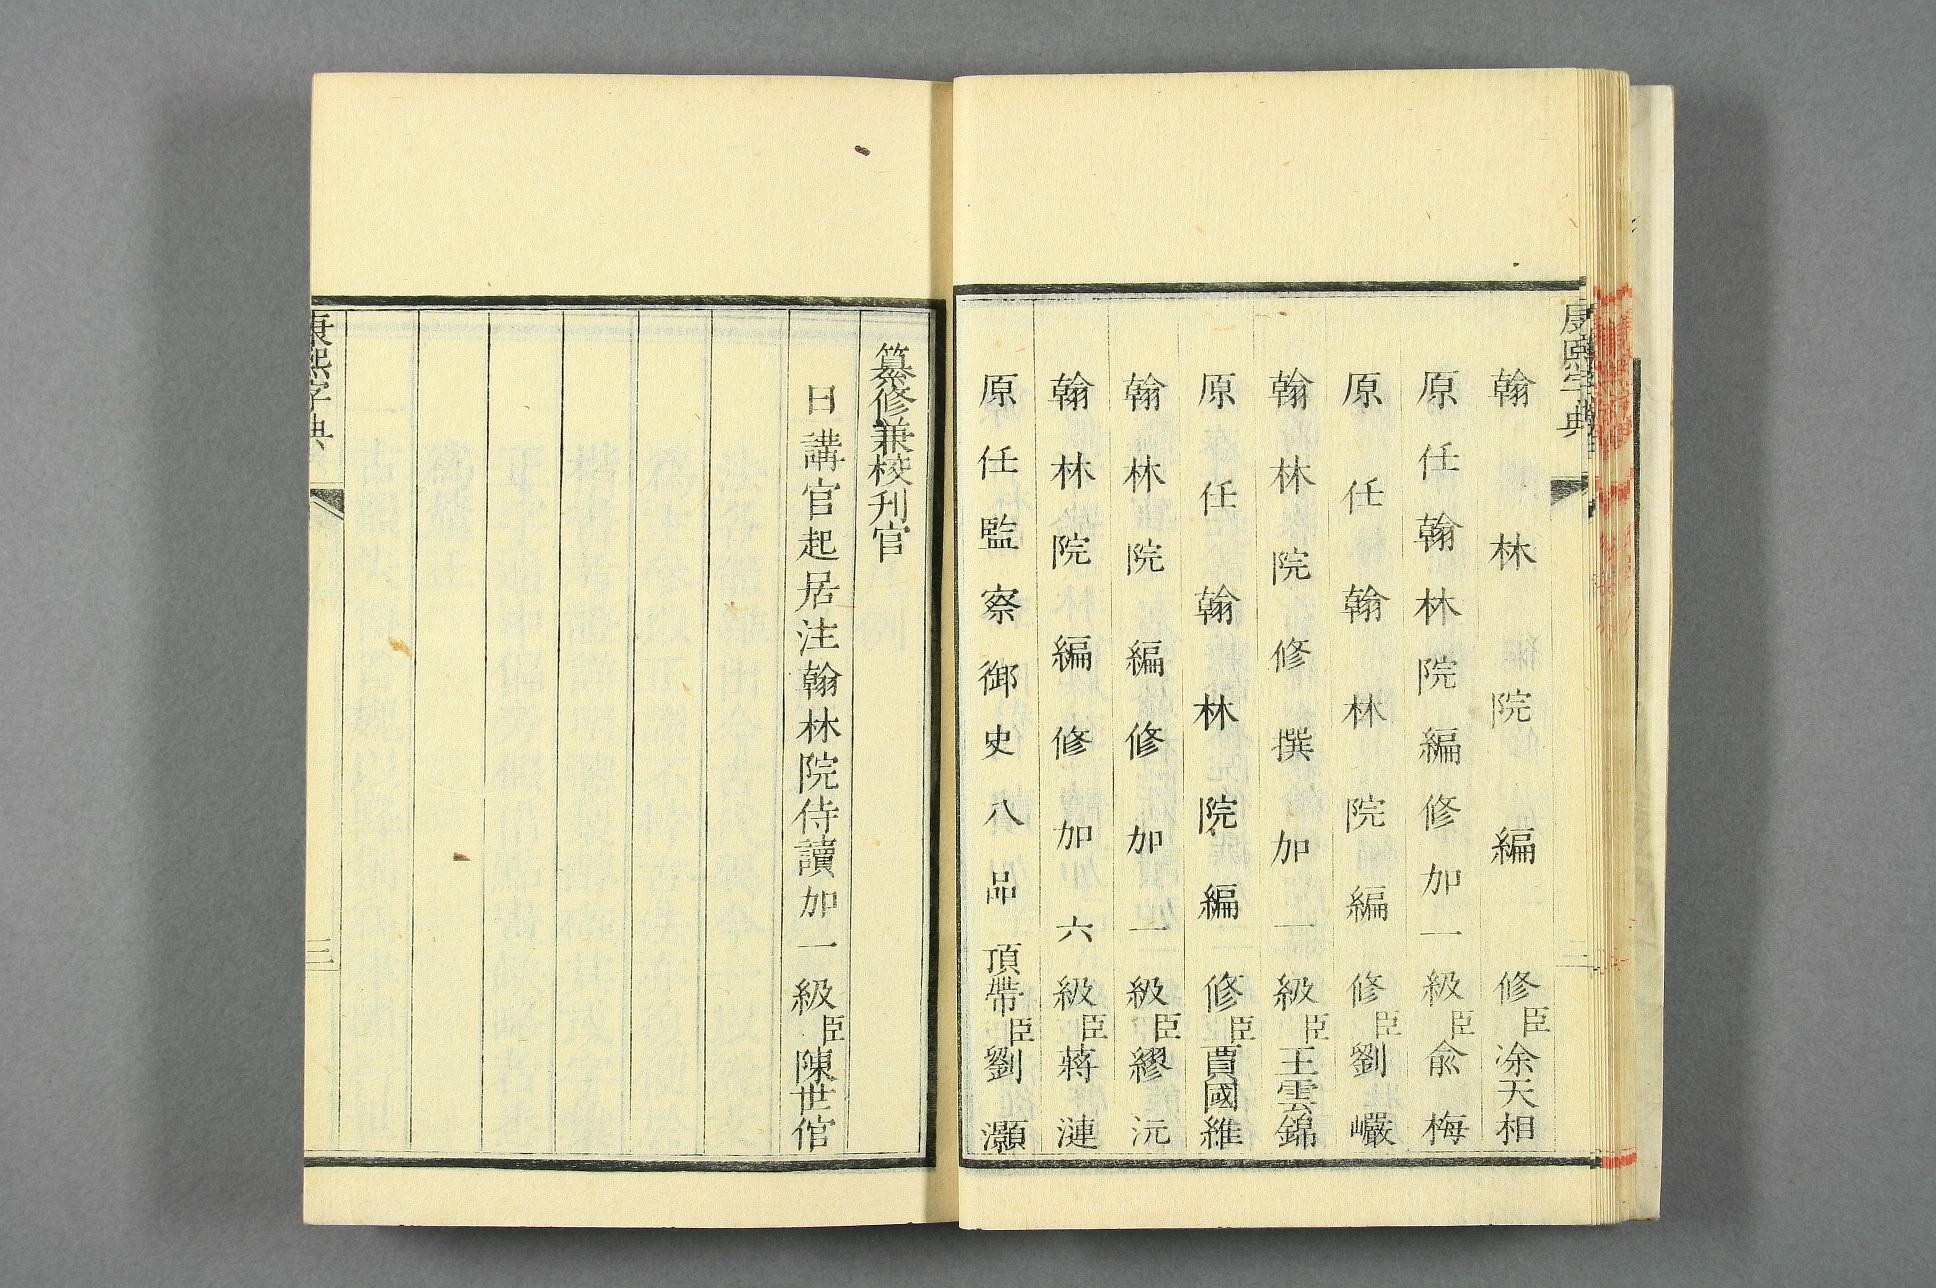 康熙字典
二
翰林院編修臣凃天相
原任翰林院編修加一級臣俞梅
原任翰林院編修臣劉巖
翰林院修撰加一級臣王雲錦
原任翰林院編修臣賈國維
翰林院編修加一級臣繆沅
翰林院編修加六級臣蔣漣
原任監察御史八品頂帶臣劉灝
纂修兼校刊官
日講官起居注翰林院侍讀加一級臣陳世倌
康熙字典
三